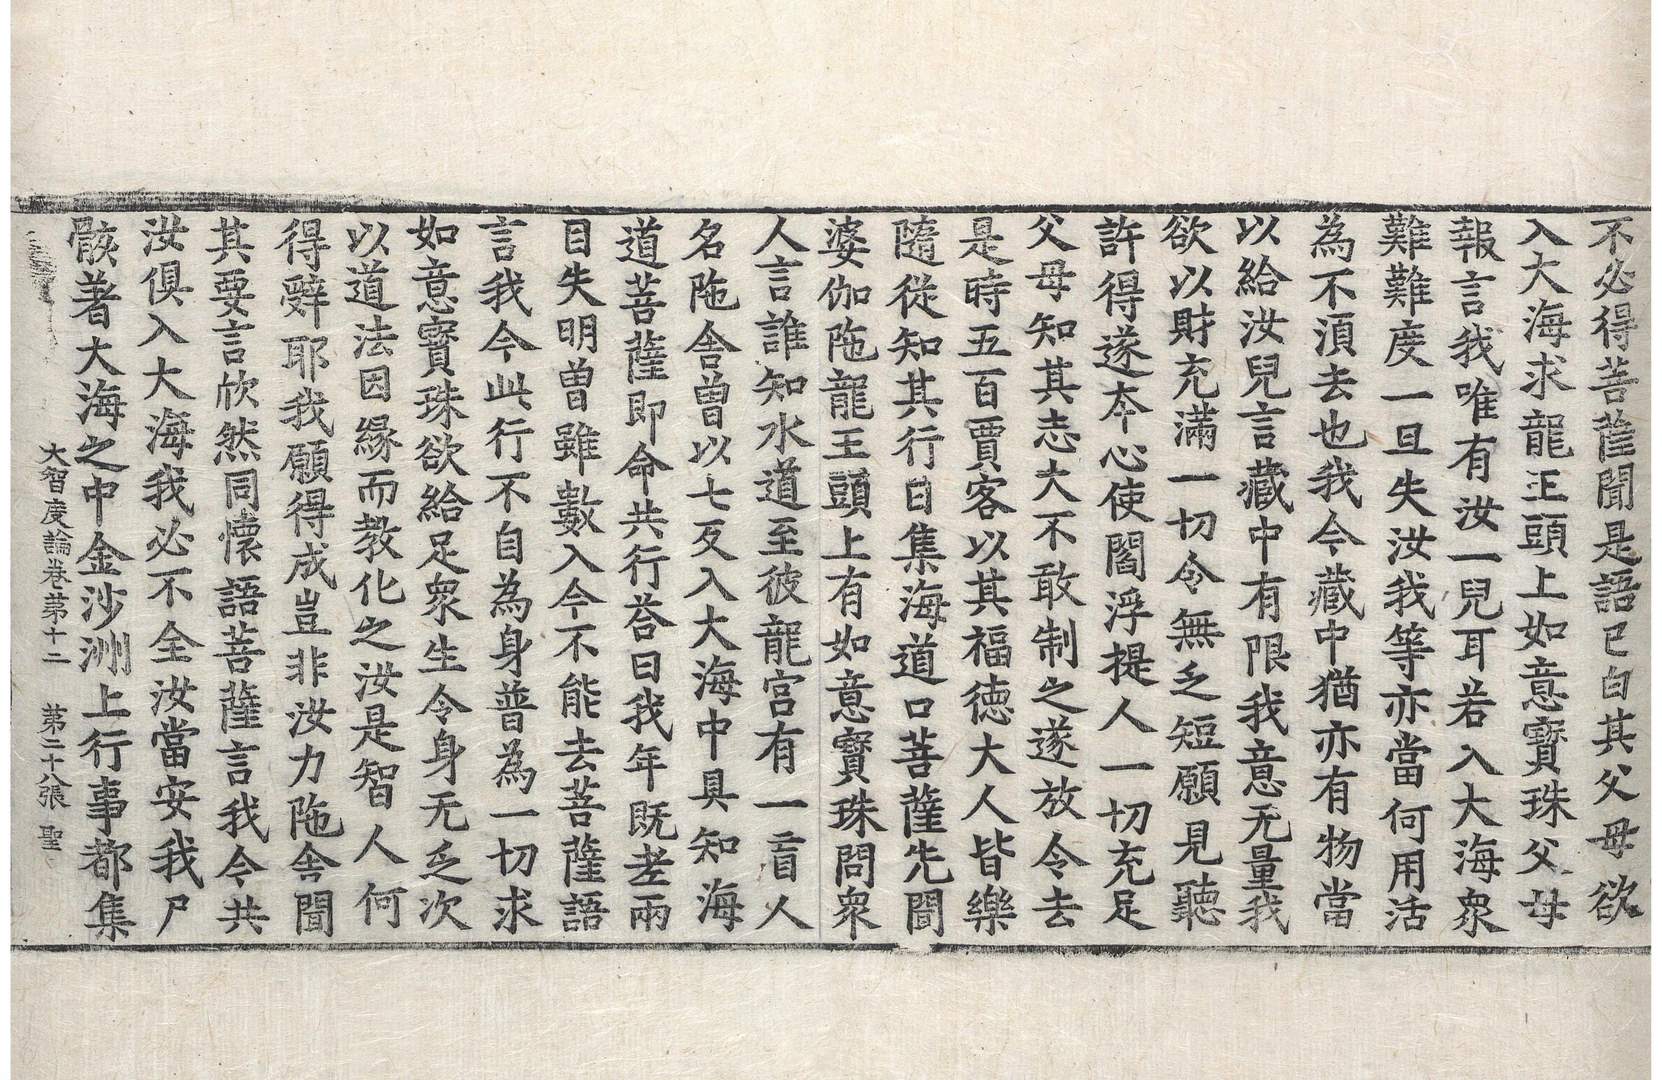 不必得菩薩聞是語已白其父母欲
入大海求龍王頭上如意寶珠父母
報言我唯有汝一兒耳若入大海衆
難難度一旦失汝我等亦當何用活
為不湏去也我今藏中猶亦有物當
以給汝兒言藏中有限我意无量我
欲以財充滿一切令無乏短願見聽
許得遂夲心使閻浮提人一切充足
父母知其志大不敢制之遂放令去
是時五百賈客以其福德大人皆樂
隨從知其行日集海道口菩薩先聞
婆伽陁龍王頭上有如意寶珠問衆
人言誰知水道至彼龍宮有一盲人
名陁舎曽以七反入大海中具知海
道菩薩即命共行荅曰我年既老兩
目失明曽雖數入今不能去菩薩語
言我今此行不自為身普為一切求
如意寶珠欲給足衆生令身无乏次
以道法因縁而教化之汝是智人何
得辝耶我願得成豈非汝力陁舎聞
其要言欣然同懷語菩薩言我今共
汝俱入大海我必不全汝當安我尸
骸著大海之中金沙洲上行事都集
大智度論卷苐十二 苐二十八張 聖